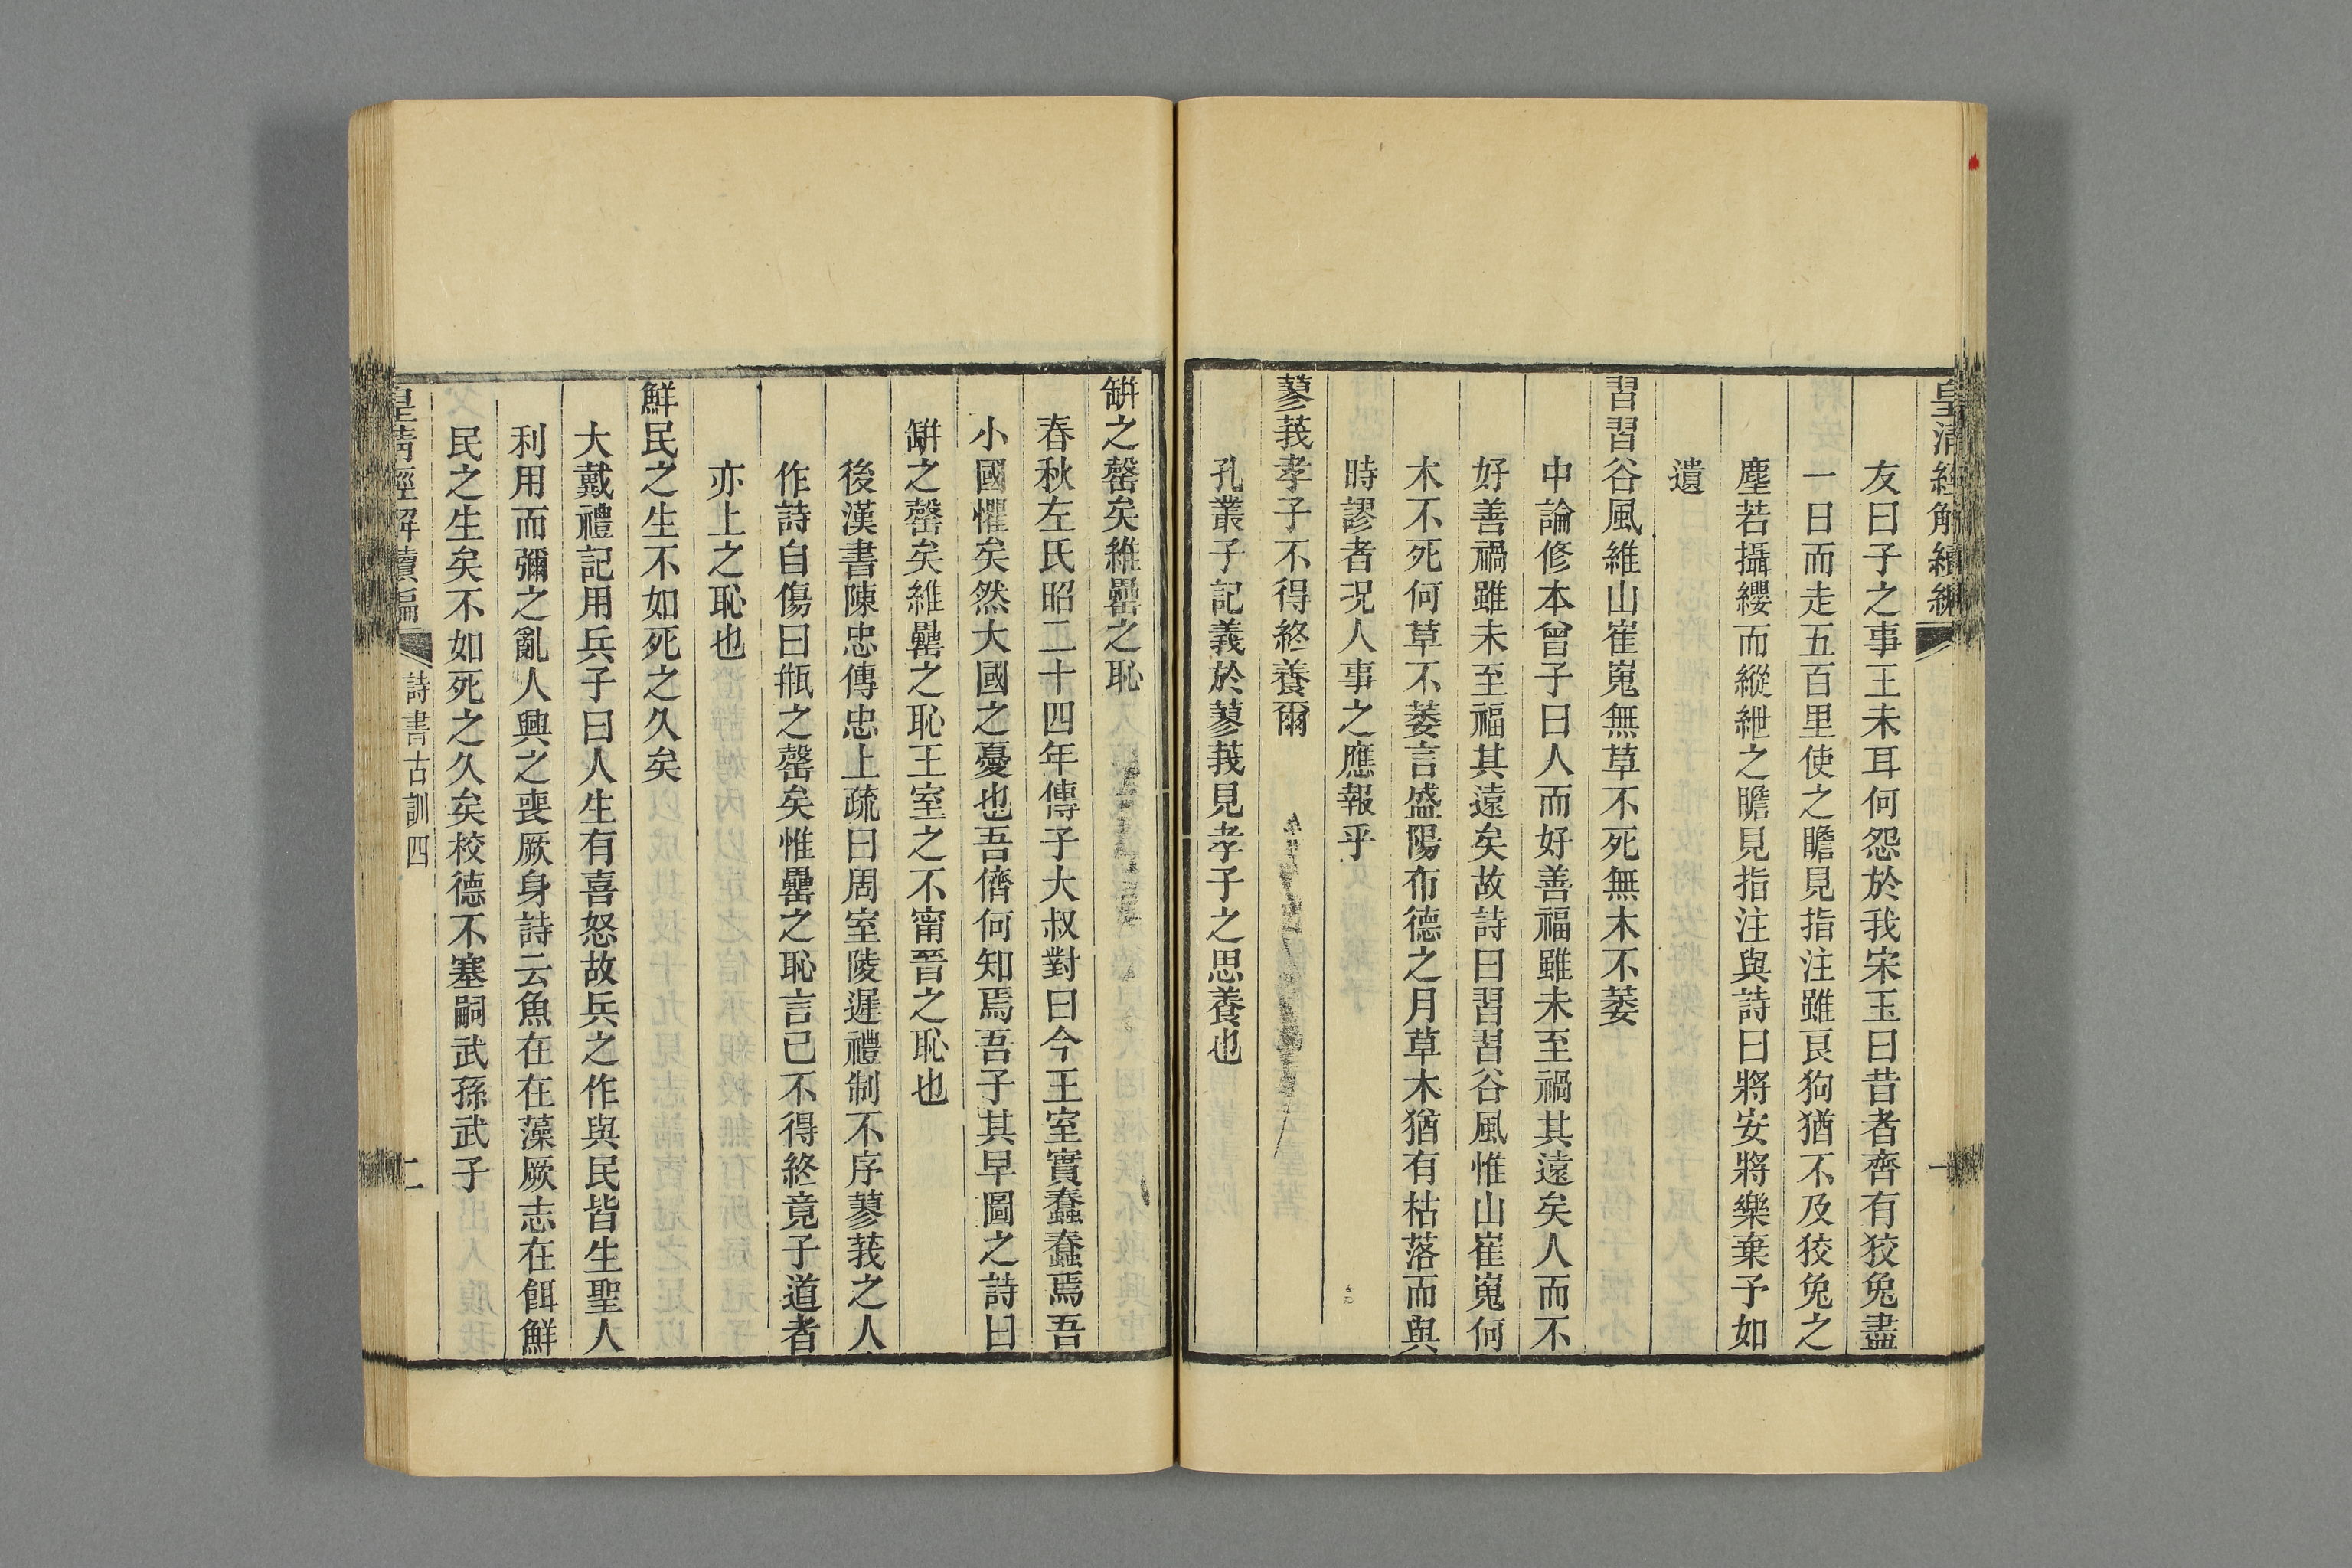 皇清經解續編
一
友曰子之事王未耳何怨於我宋玉曰昔者齊有狡兔盡
一日而走五百里使之瞻見指注雖良狗猶不及狡兔之
塵若攝纓而縱紲之瞻見指注與詩曰將安將樂棄予如
遺
習習谷風維山崔嵬無草不死無木不萎
中論修本曾子曰人而好善福雖未至禍其遠矣人而不
好善禍雖未至福其遠矣故詩曰習習谷風惟山崔嵬何
木不死何草不萎言盛陽布德之月草木猶有枯落而與
時謬者况人事之應報乎
蓼莪孝子不得終養爾
孔叢子記義於蓼莪見孝子之思養也
缾之罄矣維罍之恥
春秋左氏昭二十四年傳子大叔對曰今王室實蠢蠢焉吾
小國懼矣然大國之憂也吾儕何知焉吾子其早圖之詩曰
缾之罄矣維罍之恥王室之不甯晉之恥也
後漢書陳忠傳忠上疏曰周室陵遲禮制不序蓼莪之人
作詩自傷曰缾之罄矣惟罍之恥言已不得終竟子道者
亦上之恥也
鮮民之生不如死之久矣
大戴禮記用兵子曰人生有喜怒故兵之作與民皆生聖人
利用而彌之亂人興之喪厥身詩云魚在在藻厥志在餌鮮
民之生矣不如死之久矣校德不塞嗣武孫武子
皇清經解續編
詩書古訓四
二